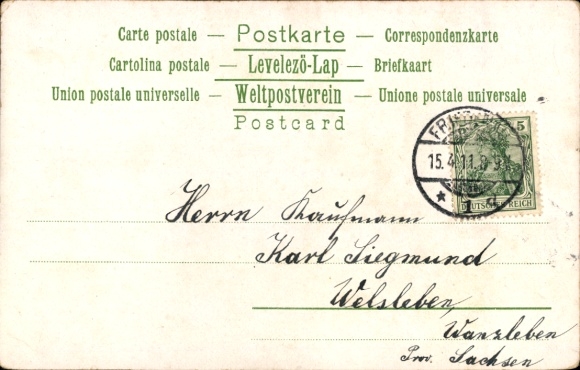 Carte postale — Postkarte — Correspondenzkarte
Cartolina postale — Levelező-Lap — Briefkaart
Union postale universelle — Weltpostverein — Unione postale universale
Postcard
5
15.4.11.
DEUTSCHES REICH
Herrn Kaufmann
Karl Siegmund
Welsleben,
Wanzleben
Prov. Sachsen